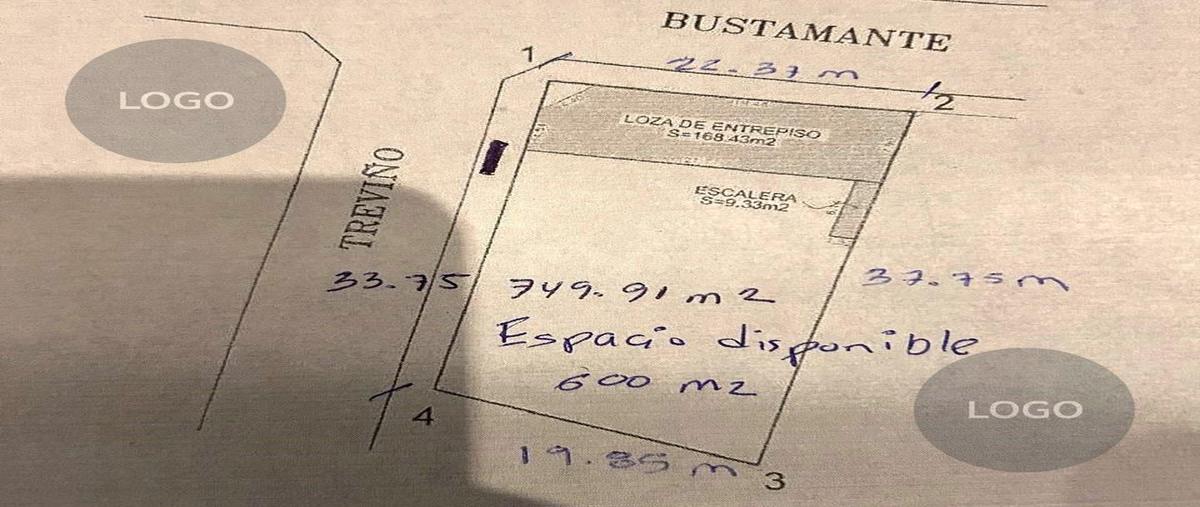 BUSTAMANTE
LOGO
1
22.37 m
2
LOZA DE ENTREPISO
S=168.43m2
TREVIÑO
ESCALERA
S=9.33m2
33.75
749.91 m2
37.75 m
Espacio disponible
600 m2
LOGO
4
19.85 m
3